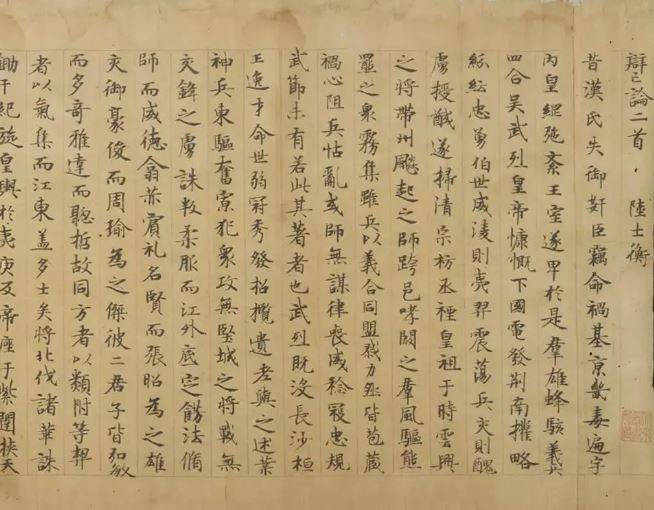 辯亡論二首，陸士衡
昔漢氏失御奸臣竊命禍基京畿毒遍宇
內皇綱弛紊王室遂卑於是羣雄蜂駭義兵
四合吳武烈皇帝慷慨下國電發荆南權略
紛紜忠勇伯世威淩則夷羿震蕩兵交則醜
虜授馘遂掃清宗祊丞禋皇祖于時雲興
之將帶州飈起之師跨邑哮闞之羣風驅熊
羆之衆霧集雖兵以義合同盟戮力然皆苞藏
禍心阻兵怙亂或師無謀律喪威稔寇忠規
武節未有若此其著者也武烈既沒長沙桓
王逸才命世弱冠秀發招攬遺老與之述業
神兵東驅奮寡犯衆攻無堅城之將戰無
交鋒之虜誅叛柔服而江外底定飭法脩
師而威德翕赫賓礼名賢而張昭為之雄
交御豪俊而周瑜為之傑彼二君子皆弘敏
而多奇雅達而聰哲故同方者以類附等契
者以氣集而江東蓋多士矣將北伐諸華誅
鋤干紀旋皇輿於夷庚及帝座于紫闥挾天